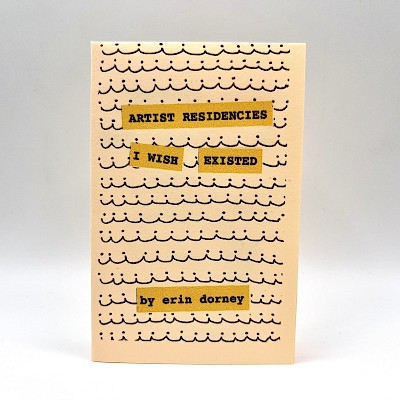 ARTIST RESIDENCIES
I WISH EXISTED
by erin dorney